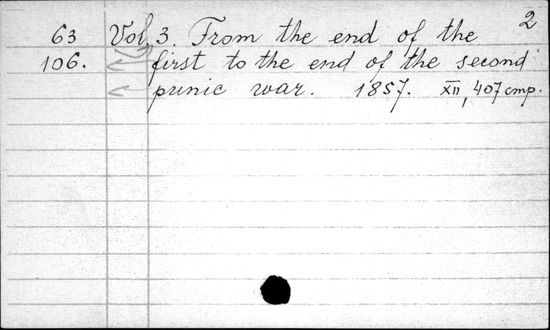 2
63 Vol. 3. From the end of the
106. first to the end of the second
punic war. 1857. XII, 407 cmp.